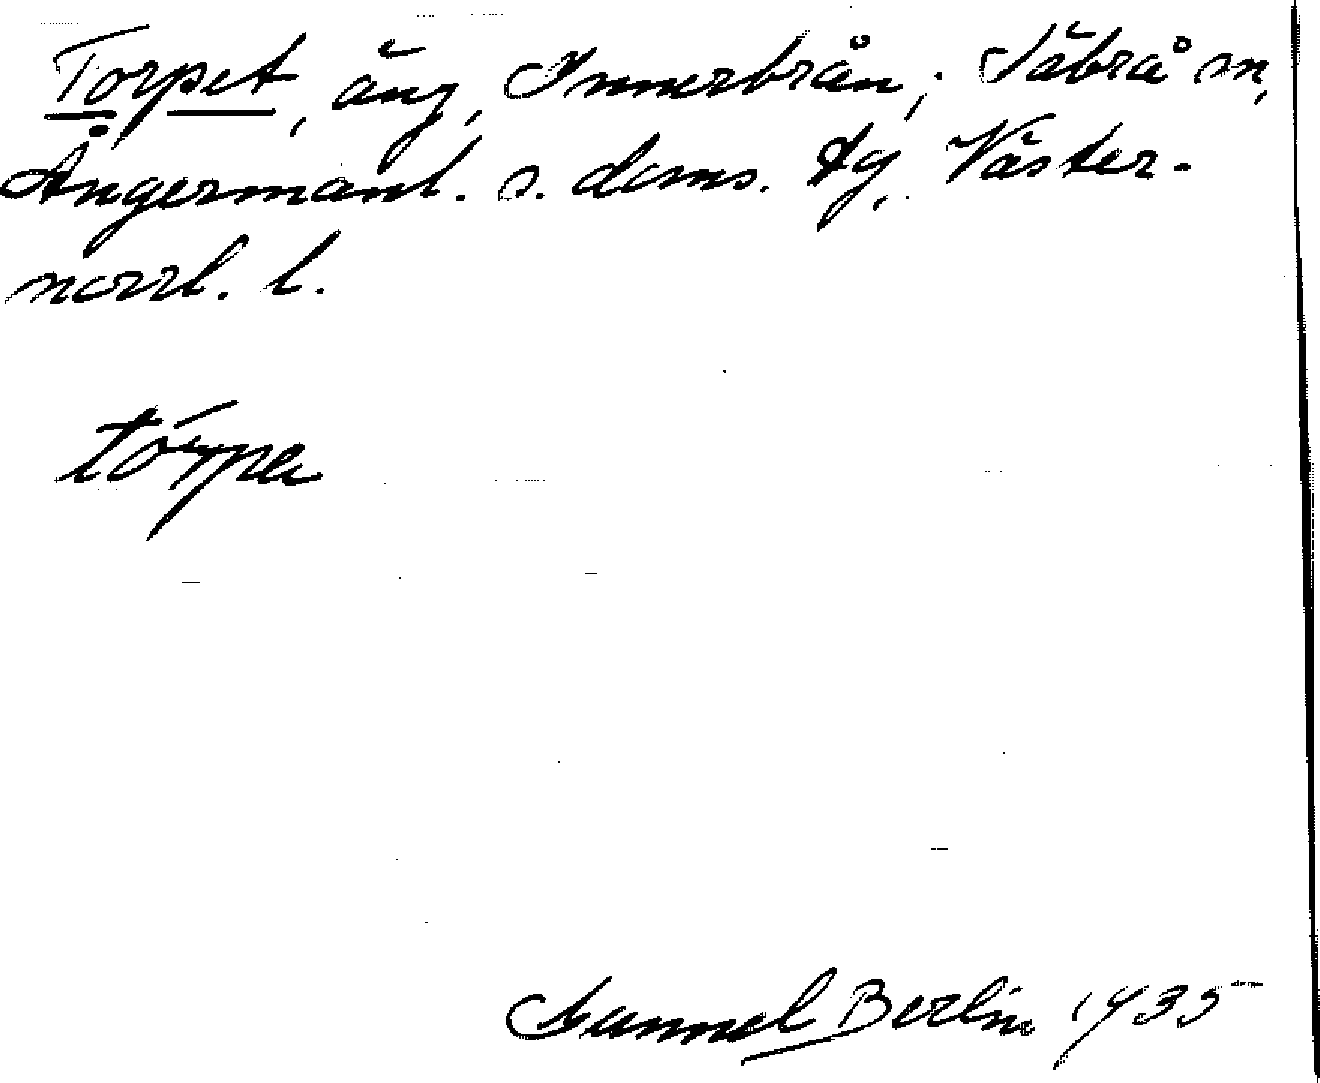 Torpet, äng, Innerbrån; Säbrå sn,
Ångermanl. s. doms. tg, Väster-
norrl. l.
tórpe
Samuel Berlin 1935